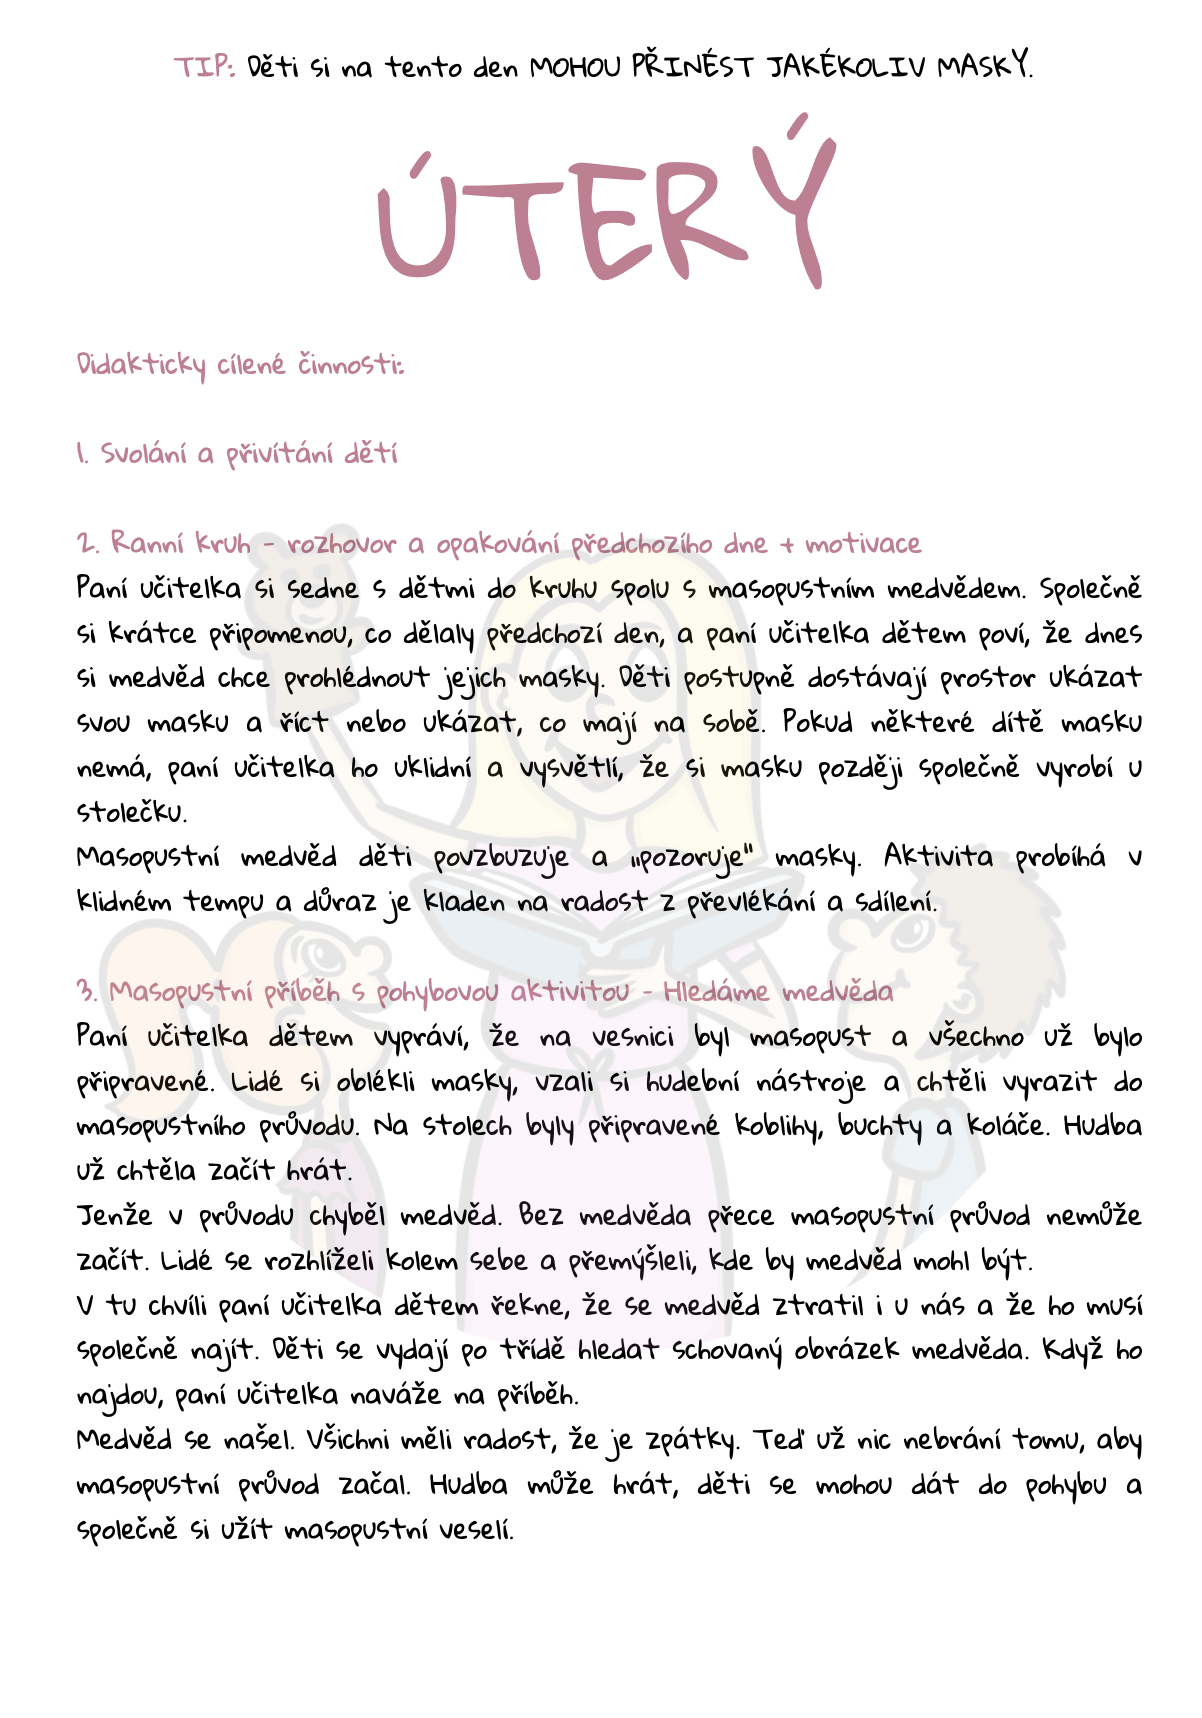 TIP: Děti si na tento den MOHOU PŘINÉST JAKÉKOLIV MASKY.
ÚTERÝ
Didakticky cílené činnosti:
1. Svolání a přivítání dětí
2. Ranní kruh - rozhovor a opakování předchozího dne + motivace
Paní učitelka si sedne s dětmi do kruhu spolu s masopustním medvědem. Společně
si krátce připomenou, co dělaly předchozí den, a paní učitelka dětem poví, že dnes
si medvěd chce prohlédnout jejich masky. Děti postupně dostávají prostor ukázat
svou masku a říct nebo ukázat, co mají na sobě. Pokud některé dítě masku
nemá, paní učitelka ho uklidní a vysvětlí, že si masku později společně vyrobí u
stolečku.
Masopustní medvěd děti povzbuzuje a „pozoruje" masky. Aktivita probíhá v
klidném tempu a důraz je kladen na radost z převlékání a sdílení.
3. Masopustní příběh s pohybovou aktivitou - Hledáme medvěda
Paní učitelka dětem vypráví, že na vesnici byl masopust a všechno už bylo
připravené. Lidé si oblékli masky, vzali si hudební nástroje a chtěli vyrazit do
masopustního průvodu. Na stolech byly připravené koblihy, buchty a koláče. Hudba
už chtěla začít hrát.
Jenže v průvodu chyběl medvěd. Bez medvěda přece masopustní průvod nemůže
začít. Lidé se rozhlíželi kolem sebe a přemýšleli, kde by medvěd mohl být.
V tu chvíli paní učitelka dětem řekne, že se medvěd ztratil i u nás a že ho musí
společně najít. Děti se vydají po třídě hledat schovaný obrázek medvěda. Když ho
najdou, paní učitelka naváže na příběh.
Medvěd se našel. Všichni měli radost, že je zpátky. Teď už nic nebrání tomu, aby
masopustní průvod začal. Hudba může hrát, děti se mohou dát do pohybu a
společně si užít masopustní veselí.